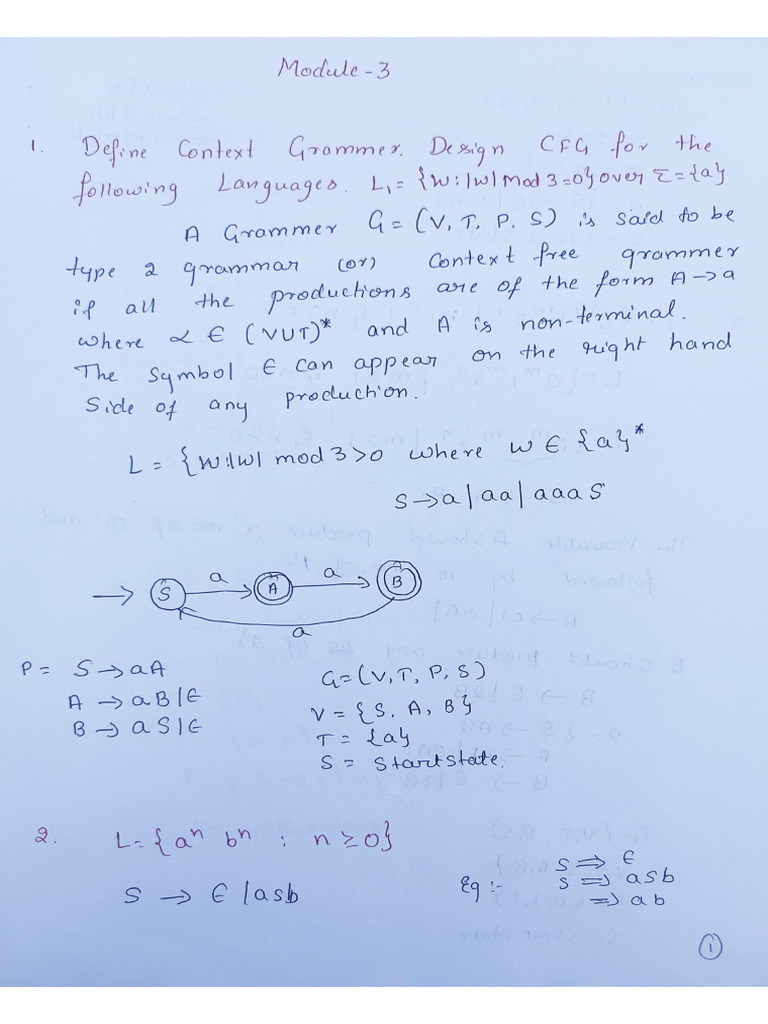 Module-3
1. Define Context Grammer. Design CFG for the
following Languages. L₁ = {W: |W| Mod 3 = 0} over Σ = {a}
A Grammer G = (V, T, P, S) is said to be
type 2 grammar (or) Context free grammer
if all the productions are of the form A → a
where α ∈ (VUT)* and A is non-terminal.
The symbol ∈ can appear on the right hand
Side of any production.
L = {W: |W| mod 3 > 0 where w ∈ {a}*
S → a | aa | aaa S
→ S a A a B
a
P = S → aA
A → aB | ∈
B → aS | ∈
G = (V, T, P, S)
V = {S, A, B}
T = {a}
S = Start state.
2. L = {aⁿ bⁿ : n ≥ 0}
S → ∈ | asb
Eg :- S ⇒ ∈
S ⇒ asb
⇒ ab
1